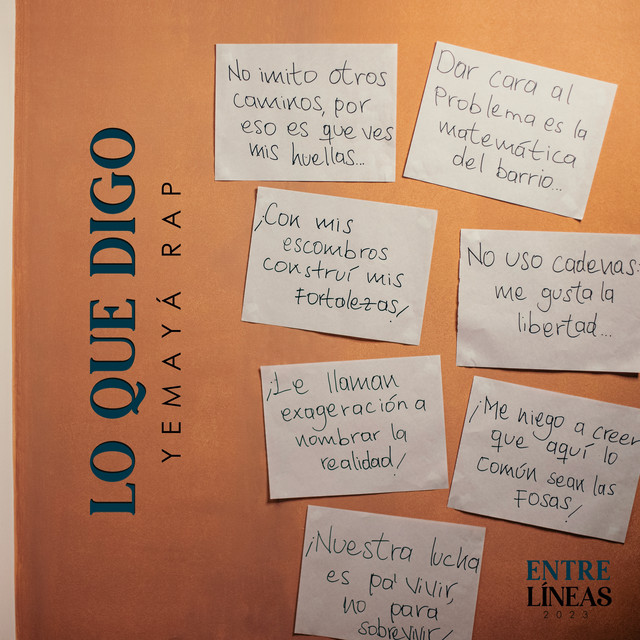 LO QUE DIGO
YEMAYÁ RAP
No imito otros
caminos, por
eso es que ves
mis huellas...
Dar cara al
problema es la
matemática
del barrio...
¡Con mis
escombros
construí mis
Fortalezas!
No uso cadenas:
me gusta la
libertad...
¡Le llaman
exageración a
nombrar la
realidad!
¡Me niego a creer
que aquí lo
común sean las
Fosas!
¡Nuestra lucha
es pa' vivir,
no para
sobrevivir!
ENTRE
LÍNEAS
2023